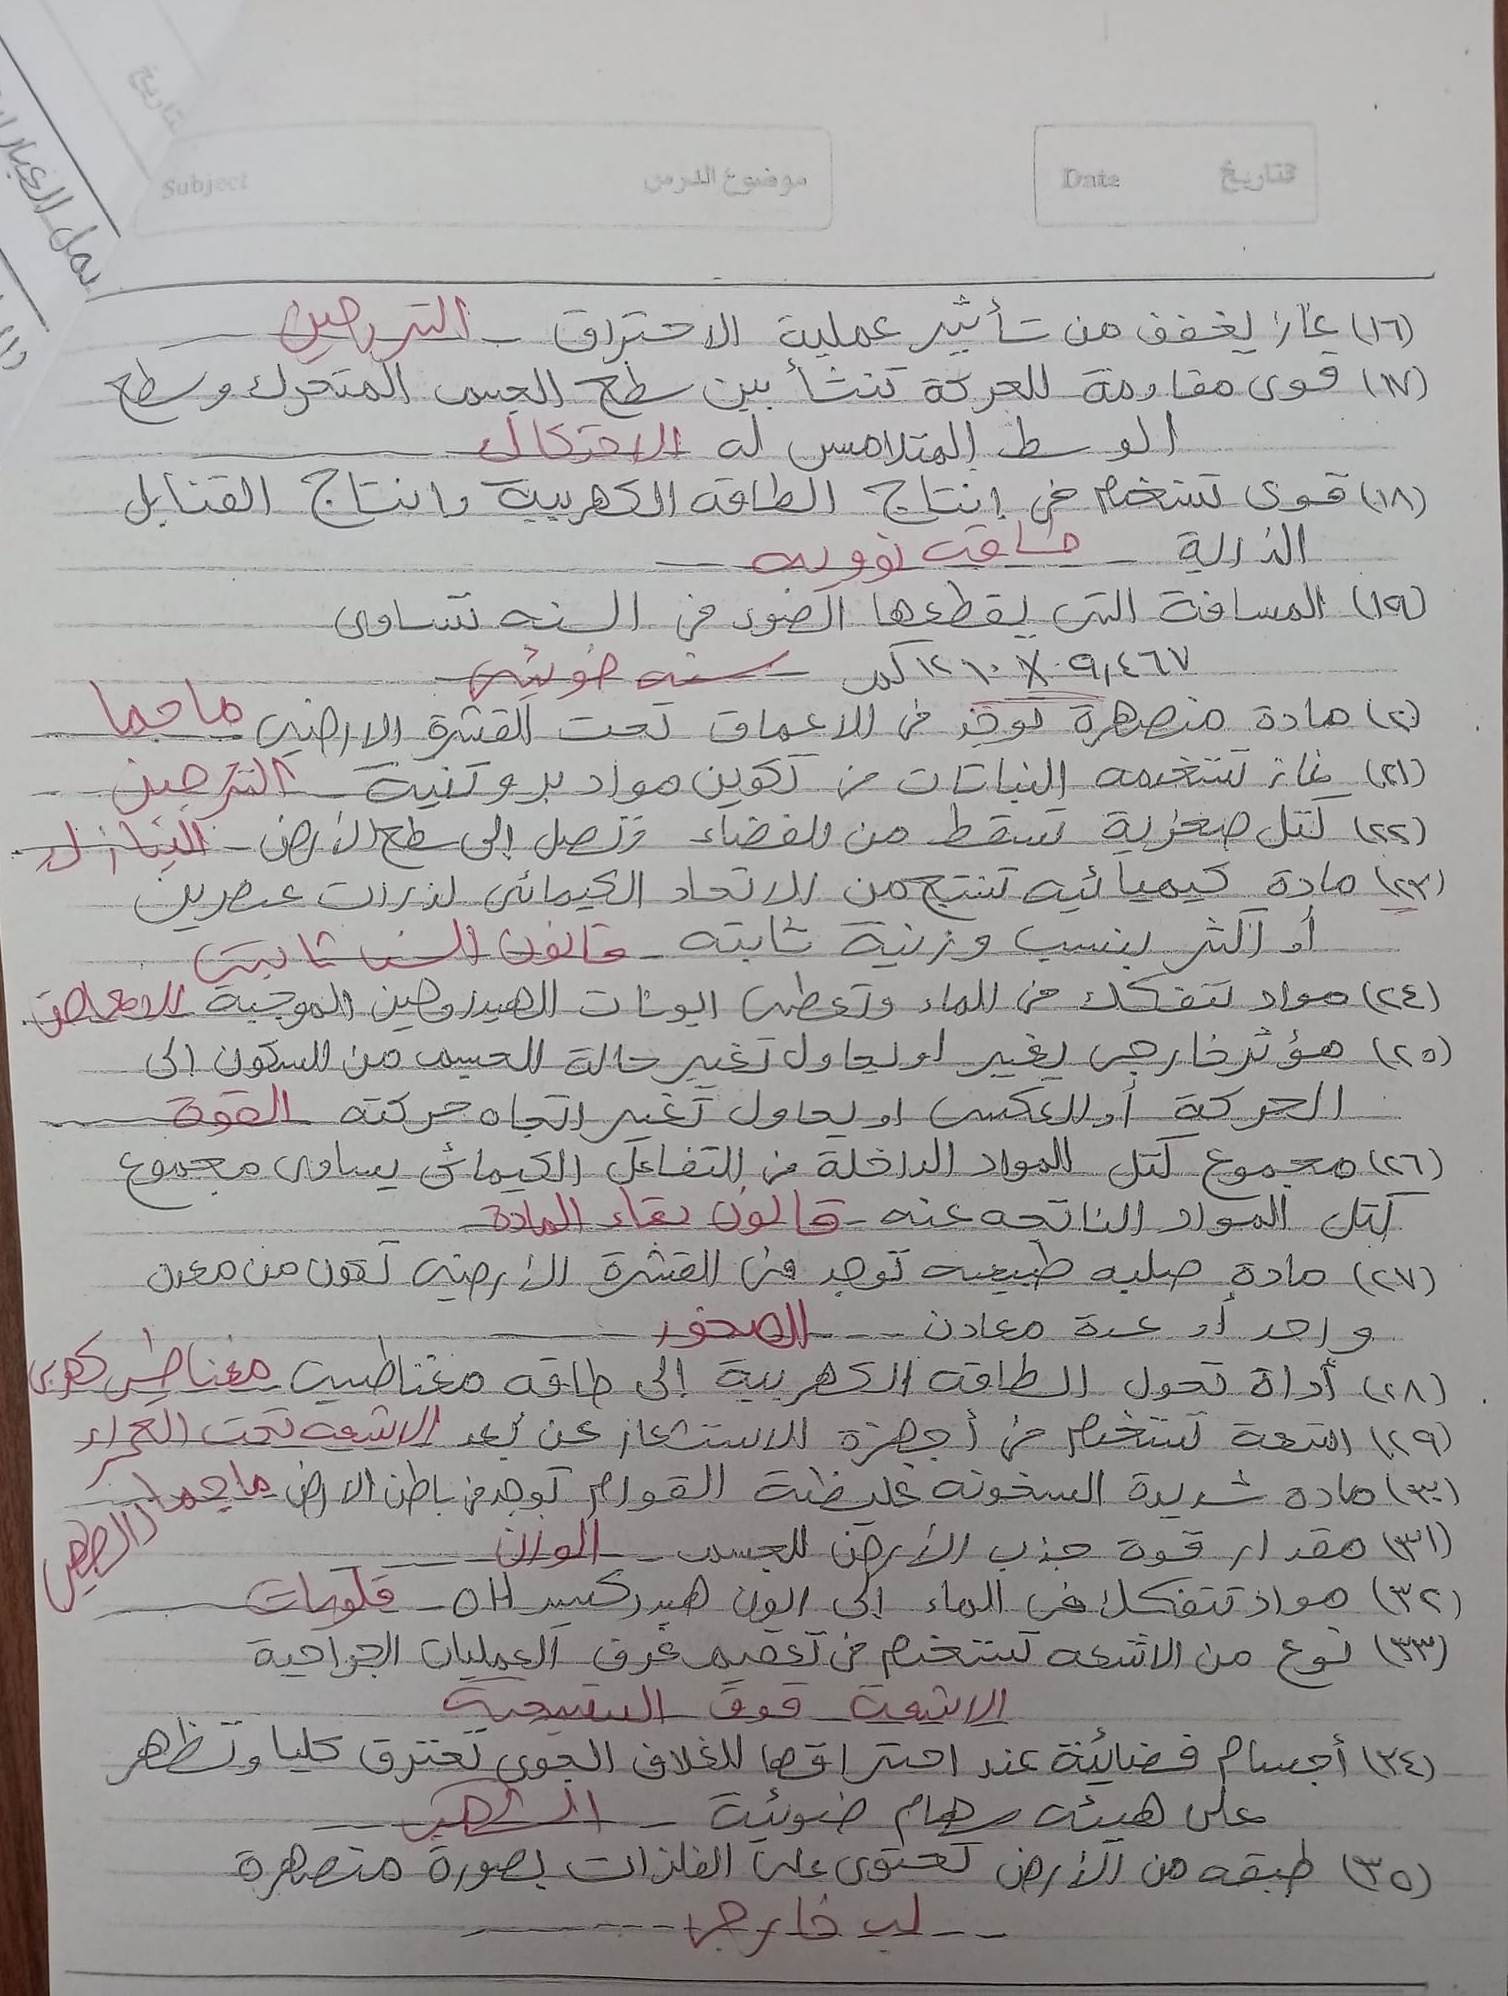 التاريخ
Date
موضوع الدرس
Subject
(١٦) غاز يخفف من تأثير عملية الاحتراق - النتروجين
(١٧) قوى مقاومة للحركة تنشأ بين سطح الجسم المتحرك وسطح
الوسط المتلامس له الاحتكاك
(١٨) قوى تستخدم فى إنتاج الطاقه الكهربية وانتاج القنابل
الذرية - طاقه نوويه
(١٩) المسافة التى يقطعها الضوء فى السنه تساوى
٩,٤٦٧ × ١٠ ١٢ كم - سنه ضوئيه
(٢٠) مادة منصهرة توجد فى الاعماق تحت القشرة الارضيه ماجما
(٢١) غاز تستخدمه النباتات فى تكوين مواد بروتنية - النتروجين
(٢٢) كتل صخرية تسقط من الفضاء وتصل إلى سطح الأرض - النيازك
(٢٣) مادة كيميائيه تنتج من الاتحاد الكيمائى لذرات عنصرين
أو أكثر بنسب وزنية ثابته - قانون النسب الثابته
(٢٤) مواد تتفكك فى الماء وتعطى ايونات الهيدروجين الموجبة الاحماض
(٢٥) مؤثر خارجى يغير او يحاول تغيير حالة الجسم من السكون إلى
الحركة أو العكس او يحاول تغير اتجاه حركته القوة
(٢٦) مجموع كتل المواد الداخلة فى التفاعل الكيمائى يساوى مجموع
كتل المواد الناتجه عنه - قانون بقاء المادة
(٢٧) مادة صلبه طبيعيه توجد فى القشرة الأرضيه تكون من معدن
واحد أو عدة معادن - الصخور
(٢٨) أداة تحول الطاقه الكهربية إلى طاقه مغناطيسية مغناطيس كهربى
(٢٩) اشعة تستخدم فى أجهزة الاستشعار عن بعد الاشعه تحت الحمراء
(٣٠) مادة شديدة السخونه غليظة القوام توجد فى باطن الارض ماجما / الصهير
(٣١) مقدار قوة جذب الأرض للجسم - الوزن
(٣٢) مواد تتفكك فى الماء إلى ايون هيدروكسيد OH - قلويات
(٣٣) نوع من الاشعه تستخدم فى تعقيم غرف العمليات الجراحية
الاشعة فوق البنفسجية
(٣٤) أجسام فضائية عند احتراقها للغلاف الجوى تحترق كليا وتظهر
على هيئه سهام ضوئية - الشهب
(٣٥) طبقه من الأرض تحتوى على الفلزات بصورة منصهرة
لب خارجى